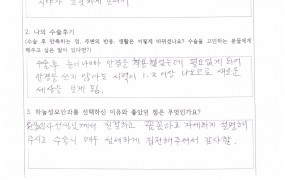 2. 나의 수술후기
(수술 후 만족하는 점, 주변의 반응, 생활은 어떻게 바뀌셨나요? 수술을 고민하는 분들에게
해주고 싶은 말이 있다면?)
수술후 눈이 나빠 안경을 착용했었는데 필요없게 되어
안경을 쓰지 않아도 시력이 1.2 이상 나오므로 새로운
세상을 보게 됨.
3. 하늘성모안과를 선택하신 이유와 좋았던 점은 무엇인가요?
선생님께서 친절하고 꼼꼼하고 자세하게 설명해
주시고 수술시 매우 섬세하게 집전해주셔서 감사함.